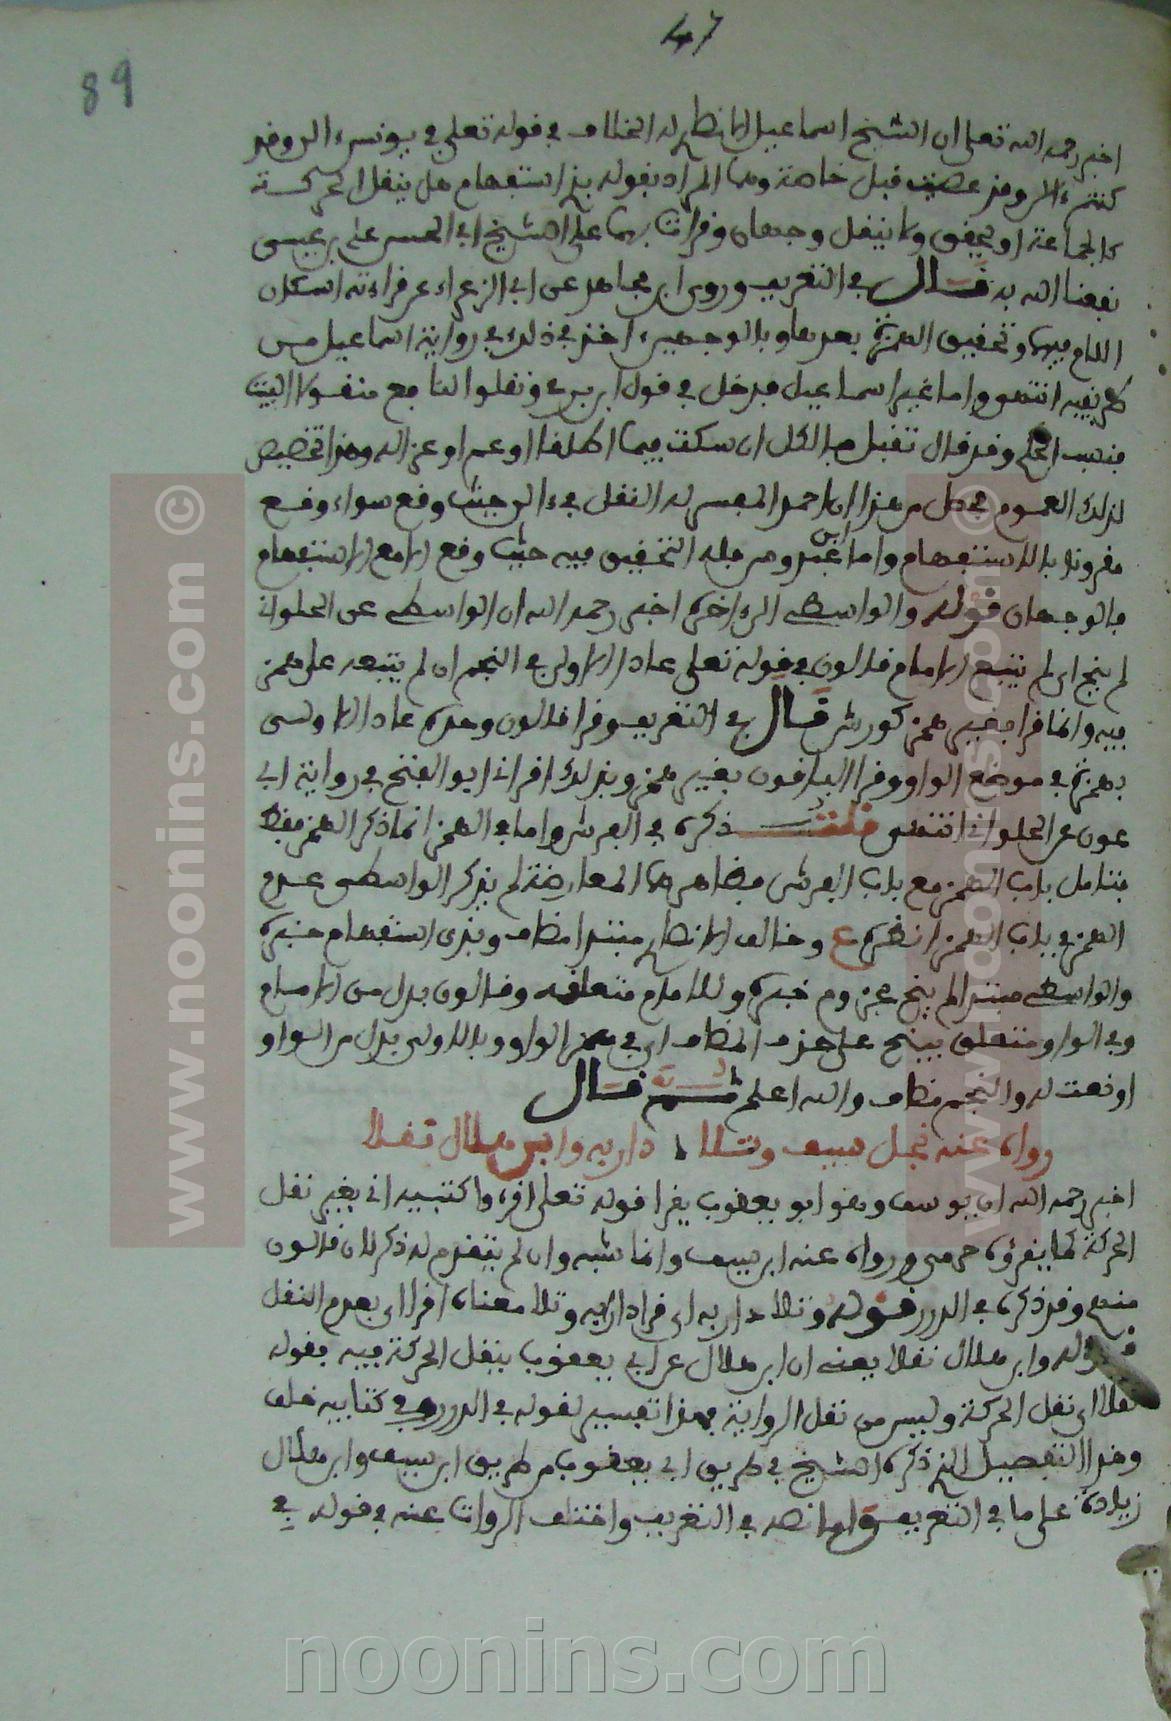 47
89
اخبر رحمه الله تعلى ان الشيخ اسماعيل الانصار له الخلاف في قوله تعلى في يونس ءالن وقد
كنتم ءالن وقد عصيت قبل خاصة وهما المراد بقوله بذا استفهام هل ينقل الحركة
كالجماعة او يحقق ولا ينقل وجهان وقرات بهما على الشيخ ابي الحسن علي بن عيسى
نفعنا الله به قال في التقريب وروى ابن مجاهد عن ابي الزعراء عن قراءته اسكان
اللام فيها وتحقيق الهمزة بعدها وبالوجهين ءاخذ في ذلك في رواية اسماعيل من
طريقيه انتهى واما غير اسماعيل فدخل في قول ابن بري ونقلوا لنافع منقولا البيت
فذهب وقد قال تقبل ما لكل ان سكت فيما اطلقا او عم او عزاله وهذا تخصيص
لذلك العموم في من هذا ان احمد المفسر له النقل في ءالن حيث وقع سواء وقع
مقرونا بالاستفهام واما ابن عبدوس فله التحقيق فيه حيث وقع الا مع الاستفهام
فالوجهان قوله والواسطي الى ءاخره اخبر رحمه الله ان الواسطي عن الحلواني
لم ينح اي لم يتبع الامام قالون في قوله تعلى عادا الاولى في النجم ان لم يتبعه على همز
فيه وانما قرا بغير همز كورش قال في التقريب وقرا قالون وحده عادا الاولى
بهمزة في موضع الواو وقرا الباقون بغير همز وبذلك اقراني ابو الفتح في رواية ابي
عون عن الحلواني انتهى قلت ذكره في الفرش واما في الهمز انما ذكر الهمز فقط
فتامل باب الهمز مع باب الفرش فظاهرها المعارضة لم يذكر الواسطي عدم
الهمز في باب الهمز انظره ع وخالف الانصار مبتدا مضاف وبذى استفهام خبره
والواسطي مبتدا لم ينح مجزوم خبره وللامام متعلقه وقالون بدل من الامام
وفي الواو متعلق بينح على حذف المضاف اي في همز الواو وبالاولى بدل من الواو
او نعت له والنجم مضاف والله اعلم ثم قال
رواه عنه نجل سيف وتلا ؛ دار به وابن هلال نقلا
اخبر رحمه الله ان يوسف وهو ابو يعقوب يقرا قوله تعلى اقرءوا كتبيه اني بغير نقل
الحركة كما يقرؤه حرمي ورواه عنه ابن سيف وانما شبه وان لم يتقدم له ذكر لان قالون
منه وقد ذكره في الدرر قوله وتلا دار به اي قرا دار به وتلا معناه اقرا اي بعدم النقل
قوله وابن هلال نقلا يعنى ان ابن هلال عن ابي يعقوب ينقل الحركة فيه فقوله
نقلا اي نقل الحركة وليس من نقل الرواية فهذا تفسير لقوله في الدرر وفي كتابيه خلف
وهذا التفصيل الذي ذكره الشيخ في طريق ابي يعقوب من طريق ابن سيف وابن هلال
زيادة على ما في التقريب ونصه في التقريب واختلف الروات عنه في قوله في
www.noonins.com ©
www.noonins.com ©
noonins.com